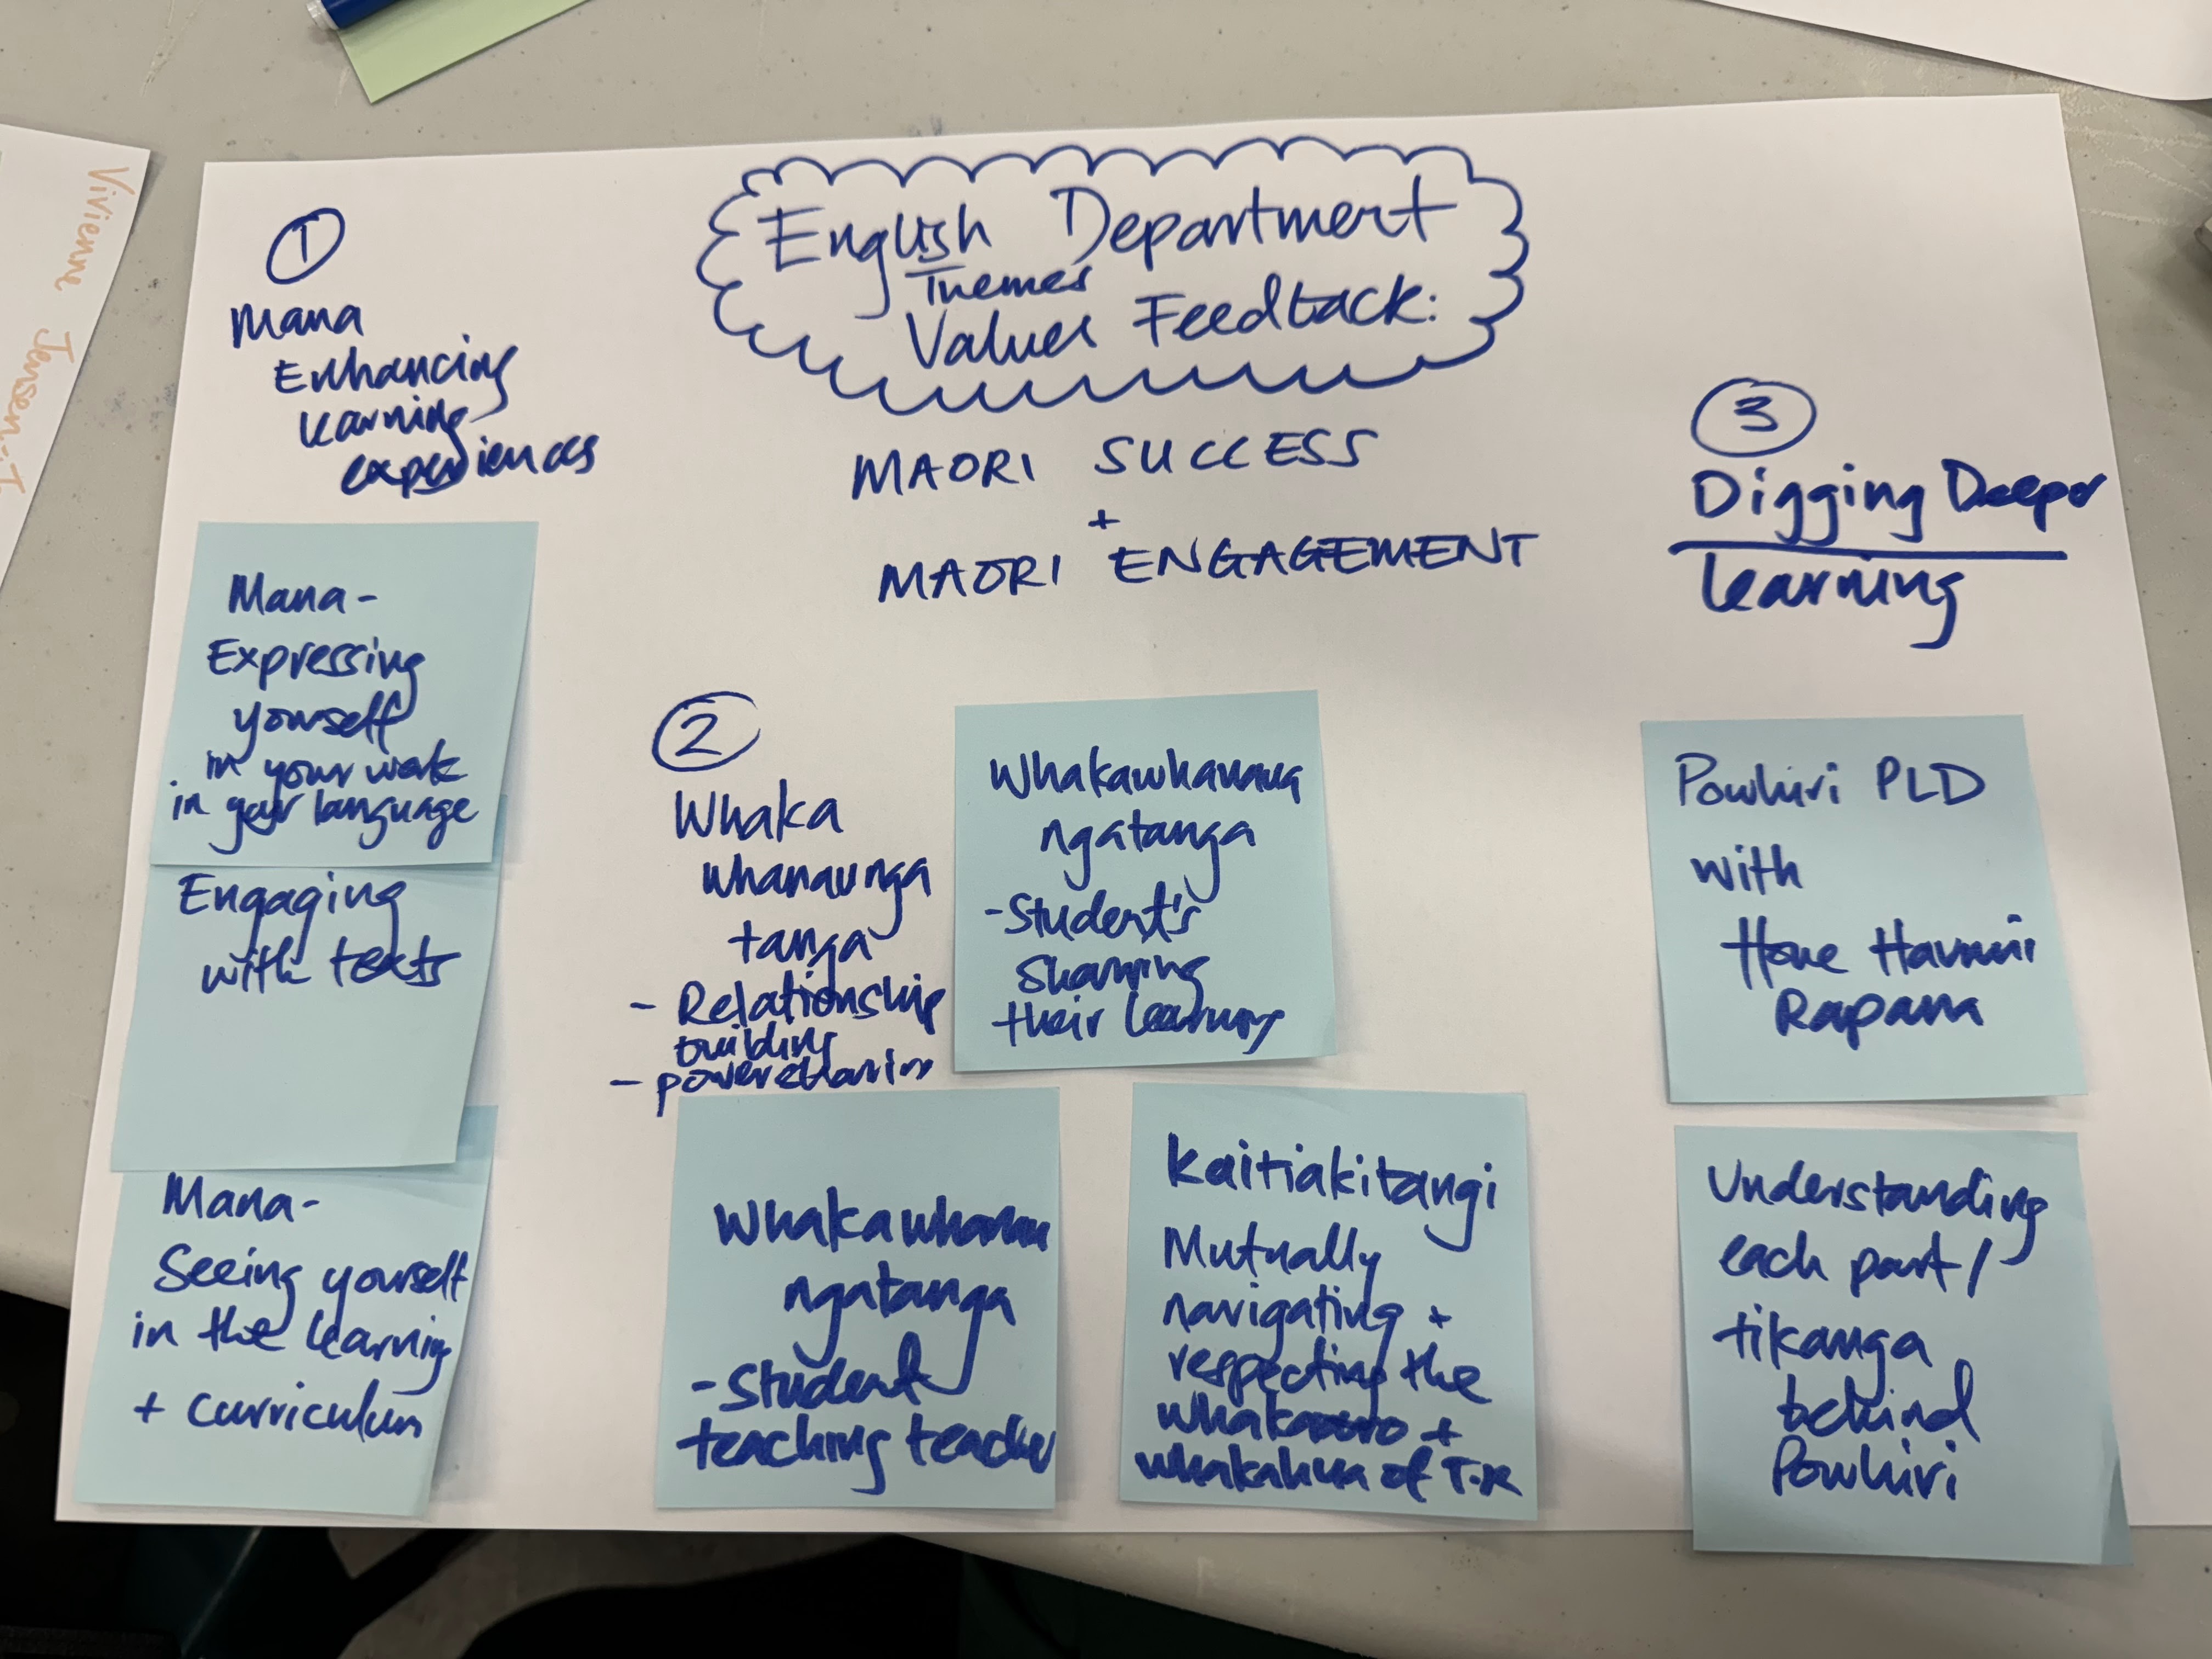 English Department
Themes
Values Feedback:
MAORI SUCCESS
+
MAORI ENGAGEMENT
1
Mana
Enhancing
learning
experiences
Mana-
Expressing
yourself
in your work
in your language
Engaging
with texts
Mana-
Seeing yourself
in the learning
+ curriculum
2
Whaka
whanaunga
tanga
- Relationship
building
- powersharing
Whakawhanaung
ngatanga
- Student's
sharing
their learning
Whakawhanau
ngatanga
- Student
teaching teacher
Kaitiakitangi
Mutually
navigating +
respecting the
whakaaro +
whakahua of T.R
3
Digging Deeper
learning
Powhiri PLD
with
Hone Havnui
Rapana
Understanding
each part/
tikanga
behind
Powhiri
Vivienne Jensen